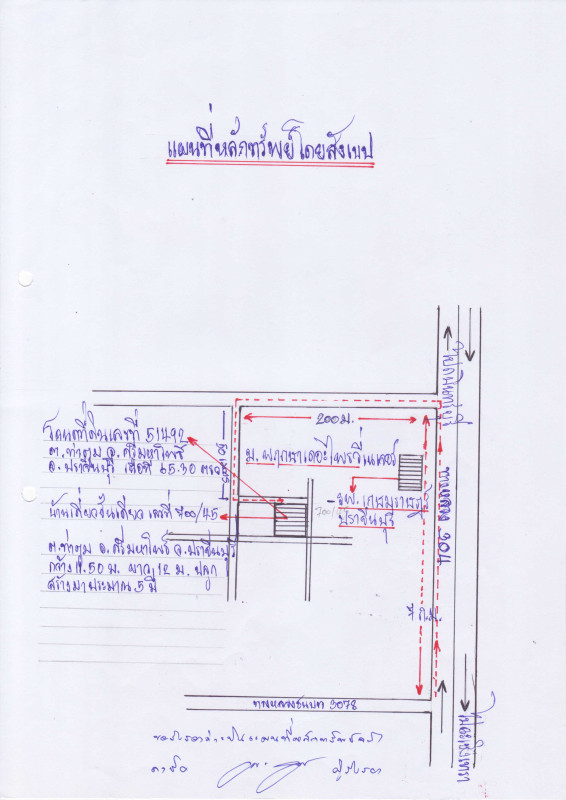 แผนที่หลักทรัพย์โดยสังเขป
ไปกบินทร์บุรี
200 ม.
โฉนดที่ดินเลขที่ 51492
ต.ท่าตูม อ.ศรีมหาโพธิ
จ.ปราจีนบุรี เนื้อที่ 65.30 ตรว.
ม. พฤกษาเดอะไพรวิ่นเดอร์
ทางหลวง 304
รพ. เกษมราษฎร์
ปราจีนบุรี
บ้านเดี่ยวชั้นเดียว เลขที่ 700/45
700/
ต.ท่าตูม อ.ศรีมหาโพธิ จ.ปราจีนบุรี
กว้าง 9.50 ม. ยาว 12 ม. ปลูก
สร้างมาประมาณ 5 ปี
ก.ม.
ทางหลวงชนบท 3078
ไปฉะเชิงเทรา
ขอรับรองว่าเป็นแผนที่หลักทรัพย์จริง
ลงชื่อ
ผู้รับรอง